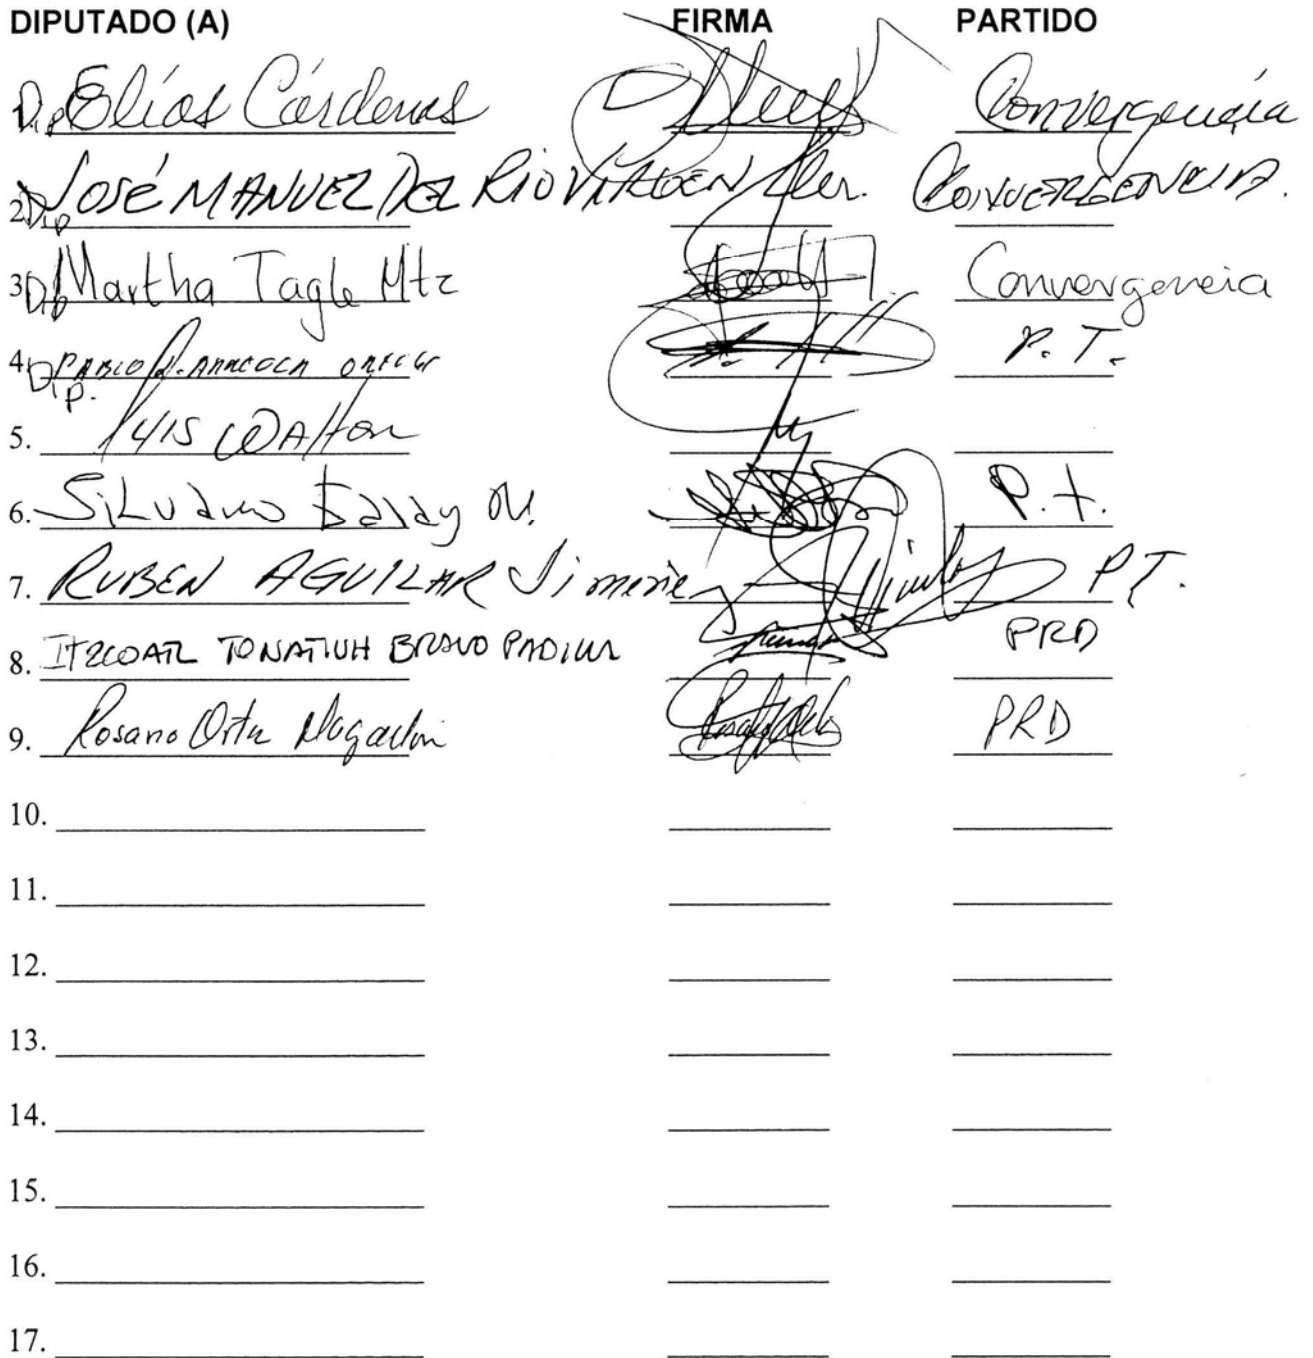 DIPUTADO (A) FIRMA PARTIDO
1. Dip Elías Cárdenas Convergencia
2. Dip JOSÉ MANUEL DEL RIO VIRGEN CONVERGENCIA.
3. Dip Martha Tagle Mtz Convergencia
4. Dip. PABLO P.T.
5. LUIS WALTON
6. SILVANO GARAY P.T.
7. RUBEN AGUILAR Jimenez PT.
8. ITZCOATL TONATIUH BRAVO PADILLA PRD
9. Rosario Ortiz Magallón PRD
10.
11.
12.
13.
14.
15.
16.
17.